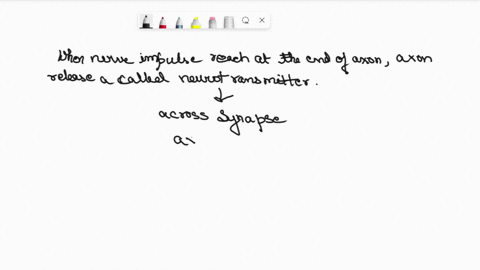 When nerve impulse reach at the end of axon, axon
release a called neurotransmitter.
across Synapse
ax